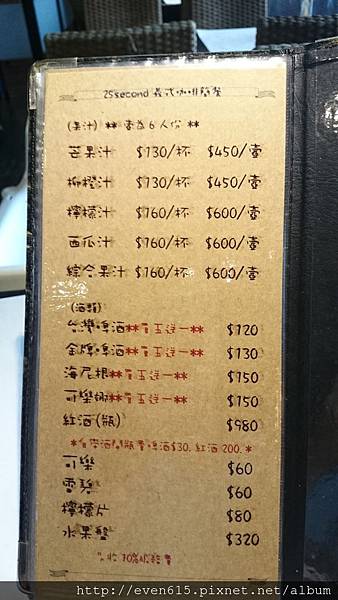 25second 義式咖啡簡餐
(果汁) ** 壹為6人份 **
芒果汁 $130/杯 $450/壹
柳橙汁 $130/杯 $450/壹
檸檬汁 $160/杯 $600/壹
西瓜汁 $160/杯 $600/壹
綜合果汁 $160/杯 $600/壹
(酒類)
台灣啤酒**買五送一** $120
金牌啤酒**買五送一** $130
海尼根**買五送一** $150
可樂娜**買五送一** $150
紅酒(瓶) $980
*自帶酒開瓶費啤酒$30. 紅酒200.*
可樂 $60
雪碧 $60
檸檬片 $80
水果盤 $320
收10%服務費
http://even615.pixnet.net/album